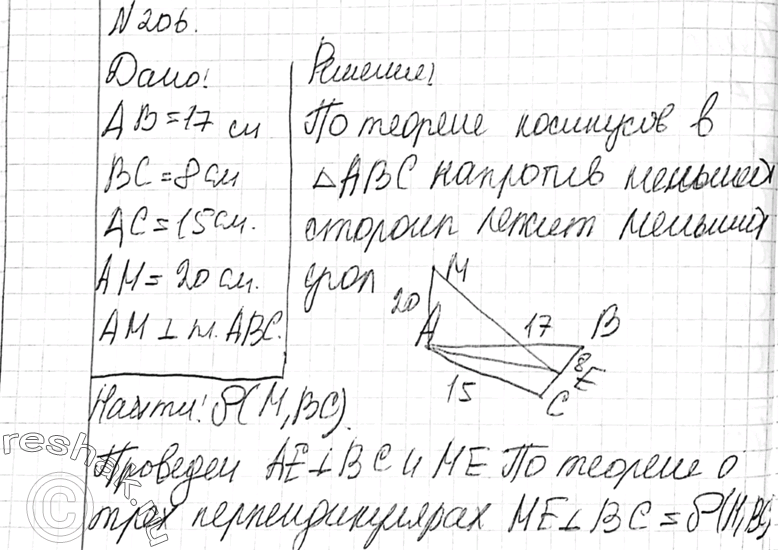 N 206.
Дано:
AB = 17 см
BC = 8 см
AC = 15 см.
AM = 20 см.
AM ⊥ пл. ABC.
Найти: ρ(M, BC).
Решение:
По теореме косинусов в
△ABC напротив меньшей
стороны лежит меньший
угол
M
20
A
17
B
8
E
15
C
Проведем AE ⊥ BC и ME По теореме о
трех перпендикулярах ME ⊥ BC = ρ(M, BC)
reshe